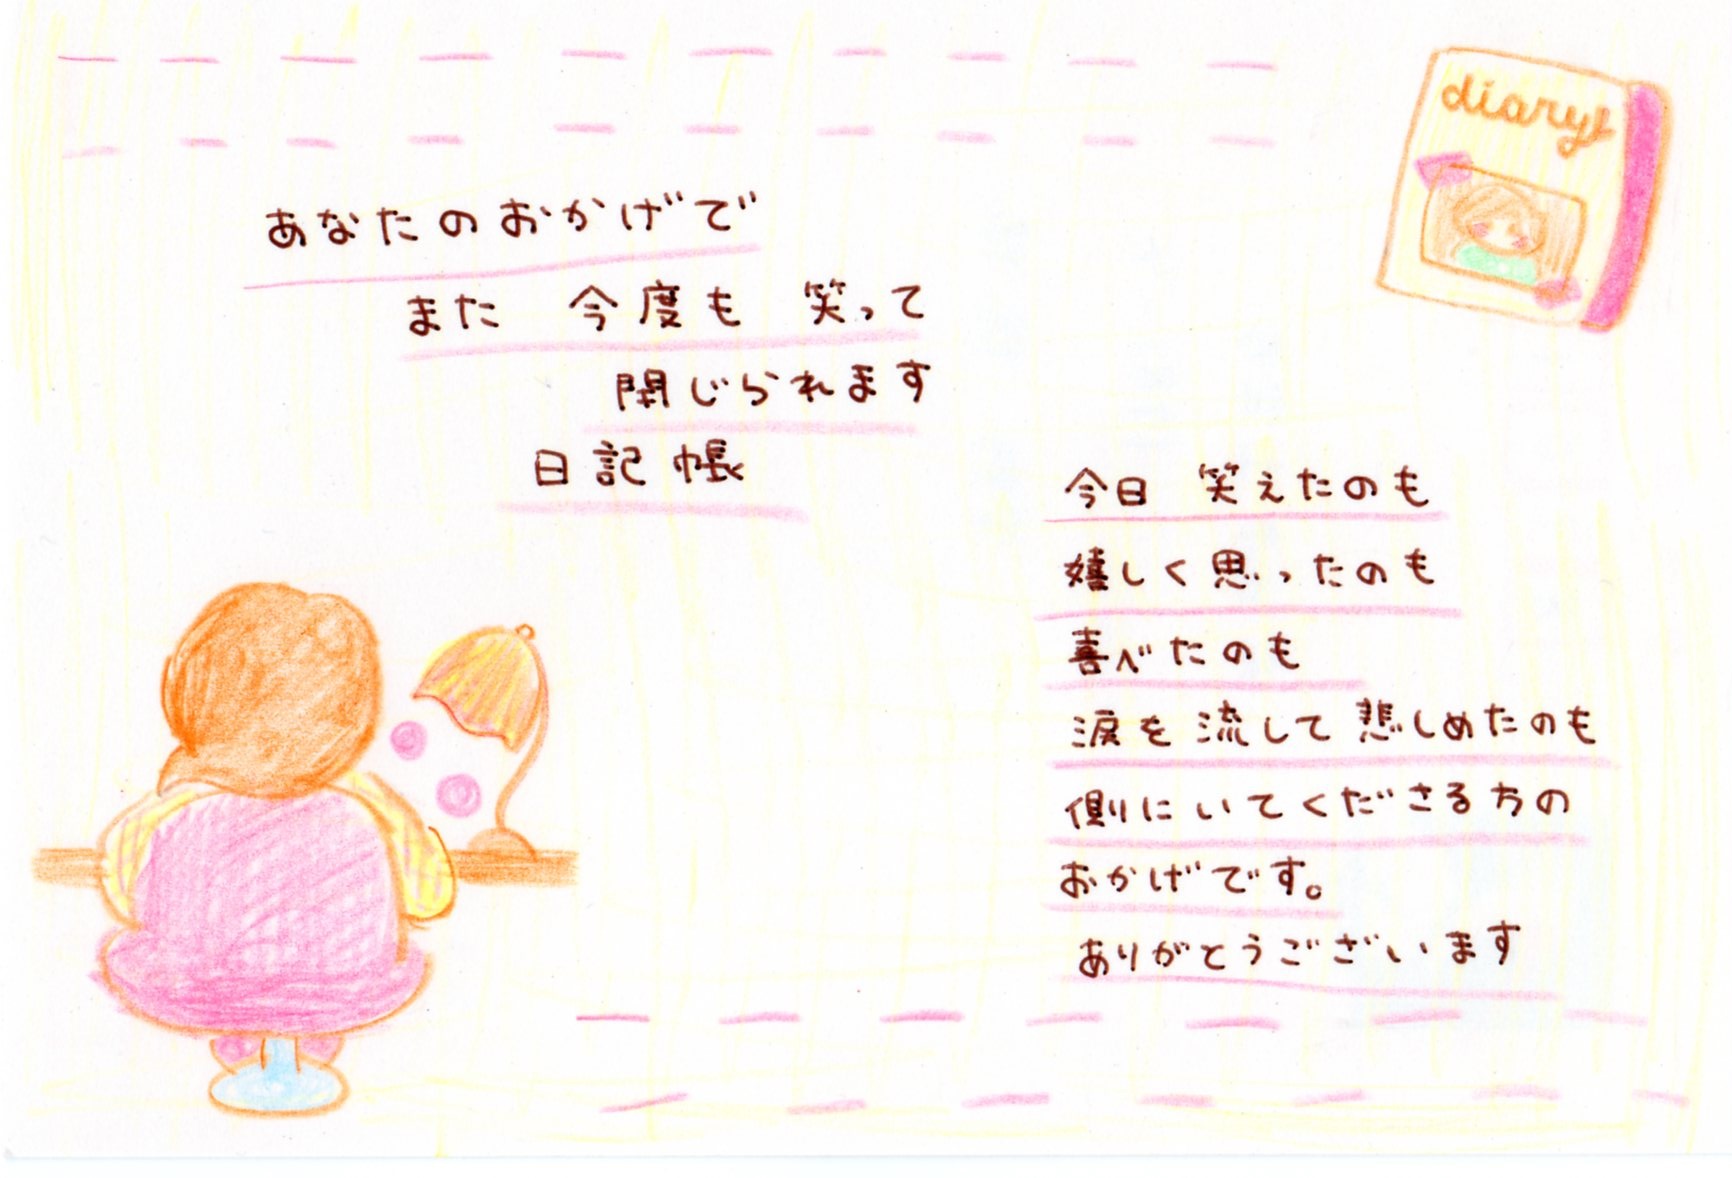 diary
あなたのおかげで
また 今度も 笑って
閉じられます
日記帳
今日 笑えたのも
嬉しく思ったのも
喜べたのも
涙を流して悲しめたのも
側にいてくださる方の
おかげです。
ありがとうございます